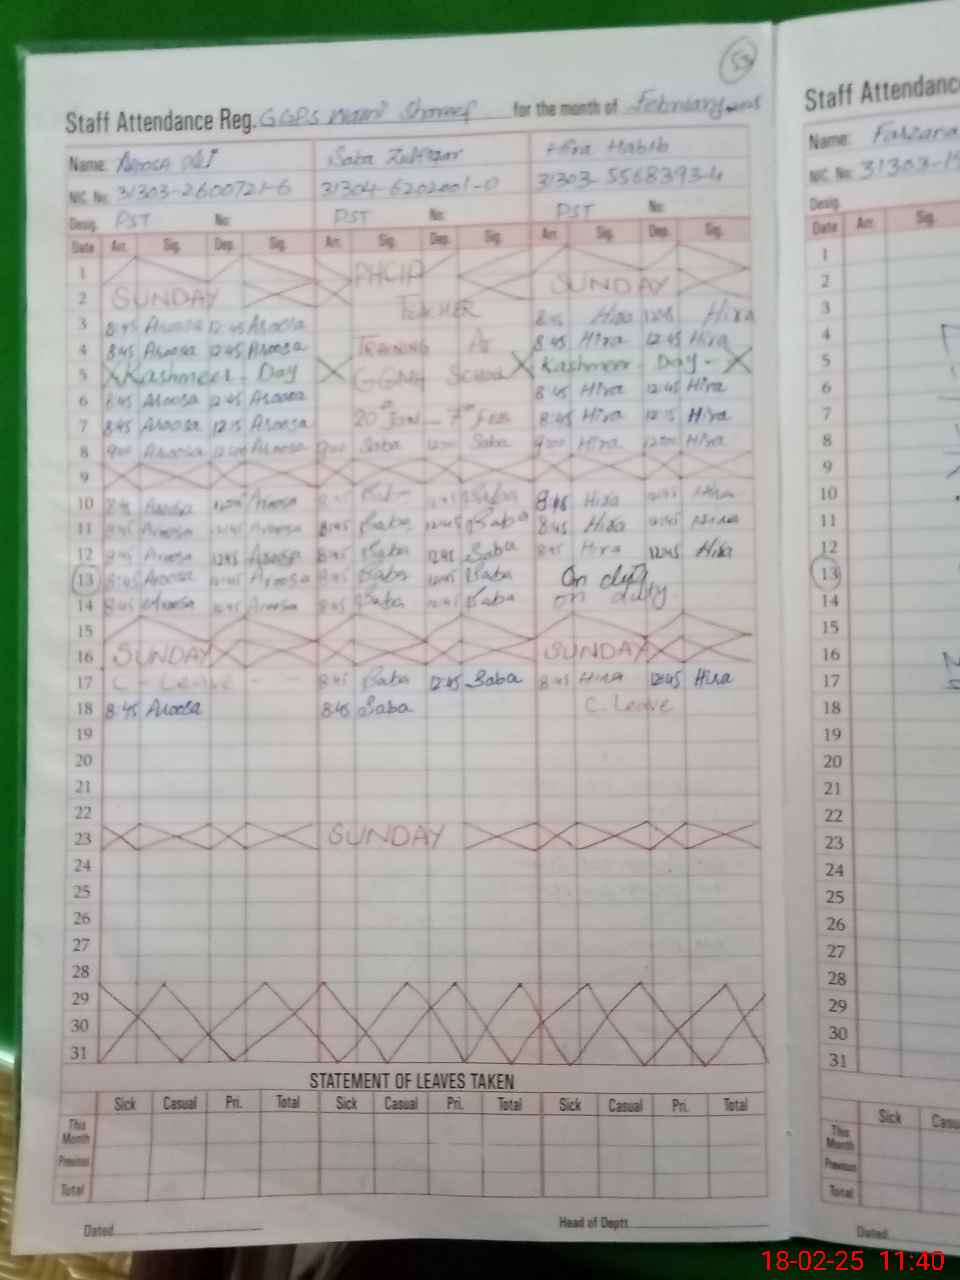 53
Staff Attendance Reg. GGPS Shareef for the month of February 2025
Name: Aroosa Saba Zulfiqar Hira Habib
NIC No: 31303-2600721-6 31304-6202001-0 31303-5568393-4
Desig. PST No: PST No: PST No:
Date Arr. Sig. Dep. Sig. Arr. Sig. Dep. Sig. Arr. Sig. Dep. Sig.
1 PHCIP
2 SUNDAY SUNDAY
3 8:45 Aroosa 12:45 Aroosa TEACHER 8:45 Hira 12:45 Hira
4 8:45 Aroosa 12:45 Aroosa TRAINING At 8:45 Hira 12:45 Hira
5 Kashmeer Day SCHOOL Kashmeer Day
6 8:45 Aroosa 12:45 Aroosa 8:45 Hira 12:45 Hira
7 8:45 Aroosa 12:15 Aroosa 20th JAN - 7th FEB 8:45 Hira 12:15 Hira
8 9:00 Aroosa 12:00 Aroosa 9:00 Saba 12:00 Saba 9:00 Hira 12:00 Hira
9
10 8:45 Aroosa Aroosa 8:45 Saba 12:45 Saba 8:45 Hira 12:45 Hira
11 8:45 Aroosa 12:45 Aroosa 8:45 Saba 12:45 Saba 8:45 Hira 12:45 Hira
12 8:45 Aroosa 12:45 Aroosa 8:45 Saba 12:45 Saba 8:45 Hira 12:45 Hira
13 8:45 Aroosa 12:45 Aroosa 8:45 Saba 12:45 Saba On duty
14 8:45 Aroosa 12:45 Aroosa 8:45 Saba 12:45 Saba on duty
15
16 SUNDAY SUNDAY
17 C - Leave - - 8:45 Saba 12:45 Saba 8:45 Hira 12:45 Hira
18 8:45 Aroosa 8:45 Saba C. Leave
19
20
21
22
23 SUNDAY
24
25
26
27
28
29
30
31
STATEMENT OF LEAVES TAKEN
Sick Casual Pri. Total Sick Casual Pri. Total Sick Casual Pri. Total
This Month
Previous
Total
Dated Head of Deptt
Staff Attendance
Name: Farzana
NIC No: 31303-15
Desig.
Date Arr. Sig.
1
2
3
4
5
6
7
8
9
10
11
12
13
14
15
16
17
18
19
20
21
22
23
24
25
26
27
28
29
30
31
Sick
This Month
Previous
Total
Dated
18-02-25 11:40